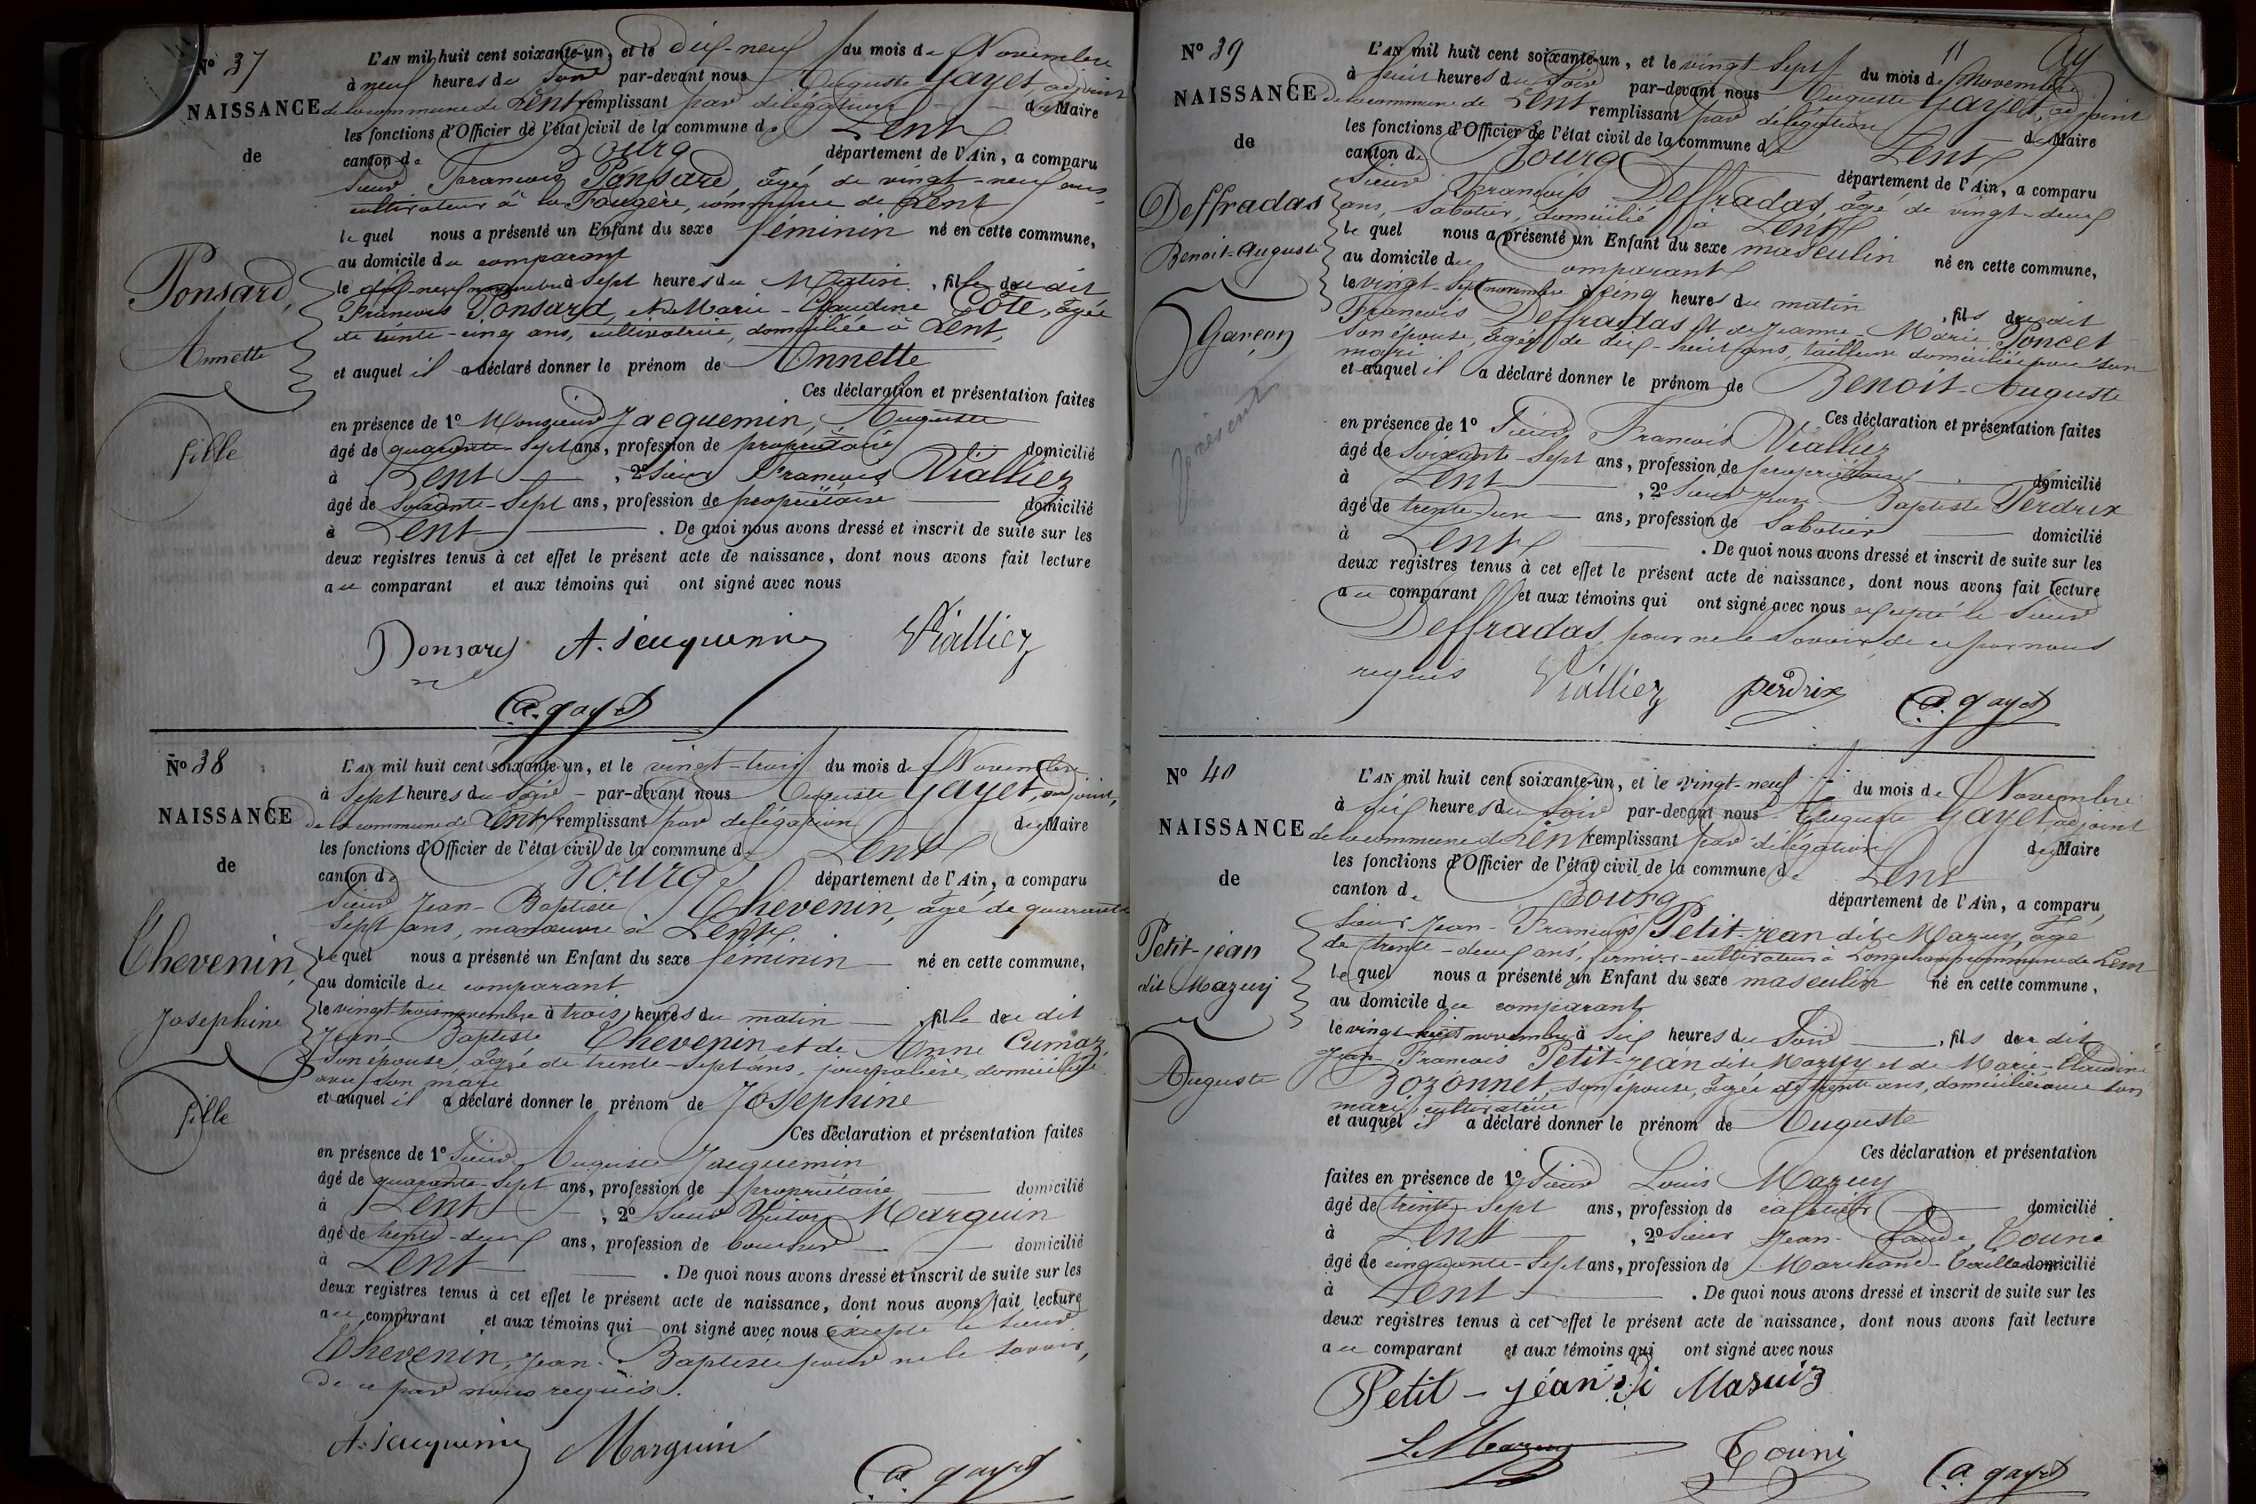 N° 37
NAISSANCE
de
Ponsard,
Annette
fille
L'AN mil huit cent soixante-un, et le dix-neuf du mois de Novembre
à neuf heures du soir par-devant nous Auguste Gayet, adjoint
de la commune de Lent remplissant par délégation du Maire
les fonctions d'Officier de l'état civil de la commune de Lent
canton de Bourg département de l'Ain, a comparu
Sieur François Ponsard, âgé de vingt-neuf ans,
cultivateur à la Fougère, commune de Lent
lequel nous a présenté un Enfant du sexe féminin né en cette commune,
au domicile du comparant
le dix-neuf novembre à sept heures du Matin, fille du dit
François Ponsard, et de Marie-Claudine Côte, âgée
de trente-cinq ans, cultivatrice, domiciliée à Lent,
et auquel il a déclaré donner le prénom de Annette
Ces déclaration et présentation faites
en présence de 1° Monsieur Jacquemin, Auguste
âgé de quarante-sept ans, profession de propriétaire domicilié
à Lent, 2° Sieur François Vialliez
âgé de soixante-sept ans, profession de propriétaire domicilié
à Lent. De quoi nous avons dressé et inscrit de suite sur les
deux registres tenus à cet effet le présent acte de naissance, dont nous avons fait lecture
au comparant et aux témoins qui ont signé avec nous
Ponsard A. Jacquemin Vialliez
A. gayet
N° 38
NAISSANCE
de
Thevenin,
Josephine
fille
L'AN mil huit cent soixante-un, et le vingt-trois du mois de Novembre
à sept heures du soir par-devant nous Auguste Gayet, adjoint,
de la commune de Lent remplissant par délégation du Maire
les fonctions d'Officier de l'état civil de la commune de Lent
canton de Bourg département de l'Ain, a comparu
Sieur Jean-Baptiste Thevenin, âgé de quarante
sept ans, manœuvre à Lent,
lequel nous a présenté un Enfant du sexe féminin né en cette commune,
au domicile du comparant
le vingt-trois novembre à trois heures du matin, fille du dit
Jean-Baptiste Thevenin et de Anne Cumaz
son épouse, âgée de trente-sept ans, journalière, domiciliée
avec son mari
et auquel il a déclaré donner le prénom de Josephine
Ces déclaration et présentation faites
en présence de 1° Sieur Auguste Jacquemin
âgé de quarante-sept ans, profession de propriétaire domicilié
à Lent, 2° Sieur Victor Marguin
âgé de trente-deux ans, profession de boucher domicilié
à Lent. De quoi nous avons dressé et inscrit de suite sur les
deux registres tenus à cet effet le présent acte de naissance, dont nous avons fait lecture
au comparant et aux témoins qui ont signé avec nous excepté le Sieur
Thevenin, Jean-Baptiste pour ne le savoir,
de ce par nous requis.
A. Jacquemin Marguin
A. gayet
11
N° 39
NAISSANCE
de
Deffradas
Benoit-Auguste
Garçon
L'AN mil huit cent soixante-un, et le vingt-sept du mois de Novembre
à huit heures du soir par-devant nous Auguste Gayet, adjoint
de la commune de Lent remplissant par délégation du Maire
les fonctions d'Officier de l'état civil de la commune de Lent
canton de Bourg département de l'Ain, a comparu
Sieur François Deffradas, âgé de vingt-deux
ans, Sabotier, domicilié à Lent
lequel nous a présenté un Enfant du sexe masculin né en cette commune,
au domicile du comparant
le vingt-sept novembre à cinq heures du matin, fils du dit
François Deffradas et de Jeanne-Marie Poncet
son épouse, âgée de dix-huit ans, tailleuse domiciliée avec son
mari
et auquel il a déclaré donner le prénom de Benoit-Auguste
Ces déclaration et présentation faites
en présence de 1° Sieur François Vialliez
âgé de soixante-sept ans, profession de propriétaire domicilié
à Lent, 2° Sieur Jean Baptiste Perdrix
âgé de trente-un ans, profession de Sabotier domicilié
à Lent. De quoi nous avons dressé et inscrit de suite sur les
deux registres tenus à cet effet le présent acte de naissance, dont nous avons fait lecture
au comparant et aux témoins qui ont signé avec nous excepté le Sieur
Deffradas, pour ne le savoir, de ce par nous
requis Vialliez perdrix A. gayet
N° 40
NAISSANCE
de
Petit-jean
dit Mazuy
Auguste
L'AN mil huit cent soixante-un, et le vingt-neuf du mois de Novembre
à six heures du soir par-devant nous Auguste Gayet, adjoint
de la commune de Lent remplissant par délégation du Maire
les fonctions d'Officier de l'état civil de la commune de Lent
canton de Bourg département de l'Ain, a comparu
Sieur Jean-François Petit-jean dit Mazuy, âgé
de trente-deux ans, fermier-cultivateur à Longchamp commune de Lent
lequel nous a présenté un Enfant du sexe masculin né en cette commune,
au domicile du comparant
le vingt-huit novembre à six heures du Soir, fils du dit
Jean-François Petit-jean dit Mazuy et de Marie-Claudine
Bozonnet, son épouse, âgée de trente ans, domiciliée avec son
mari, cultivatrice
et auquel il a déclaré donner le prénom de Auguste
Ces déclaration et présentation
faites en présence de 1° Sieur Louis Mazuy
âgé de trente-sept ans, profession de domicilié
à Lent, 2° Sieur Jean-Claude Touni
âgé de cinquante-sept ans, profession de Marchand-Tailleur domicilié
à Lent. De quoi nous avons dressé et inscrit de suite sur les
deux registres tenus à cet effet le présent acte de naissance, dont nous avons fait lecture
au comparant et aux témoins qui ont signé avec nous
Petit-jean di Masuiz
L. Mazuy Touni A. gayet